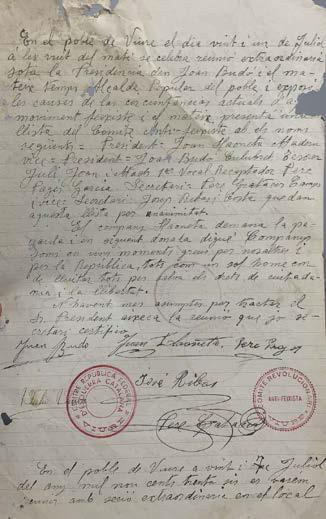 En el poble de Viure el dia vint i un de Juliol
a les vuit del matí se celebra reunió extraordinaria
sota la Presidencia den Joan Budó i el ma-
teix temps Alcalde Popular del poble i exposi
les causes de las circunstancies actuals d'
moviment feixiste i el mateix presenta una
llista del Comite anti-feixista es els noms
seguents = President = Joan Maoneta
vice = President = Joan Budó
Juli Joan i 1er Vocal Receptador Pere
Pagés Garcia Secretari = Pere Trabacer
i vice = Secretari Josep Ribas Costa quedan
aquesta llista per unanimitat.
El company Maoneta demana la pa-
raula i en seguent donala digué Companys
som en uns moments greus per nosaltres i
per la República, tots com un sol home
de lluitar tots per els drets de ciutada-
nia i la llibertat.
No havent mes asumptes per tractar el
Sr. President aixeca la reunió que jo se-
cretari certifico
Juan Budó Pere Pagés
José Ribas
CENTRE REPÚBLICA FEDERAL
VIURE
COMITE REVOLUCIONARI
ANTI-FEIXISTA
VIURE
Pere
En el poble de Viure a vint i de Juliol
del any mil nou cents trenta sis es varem
reunir amb seció extraordinaria en el local